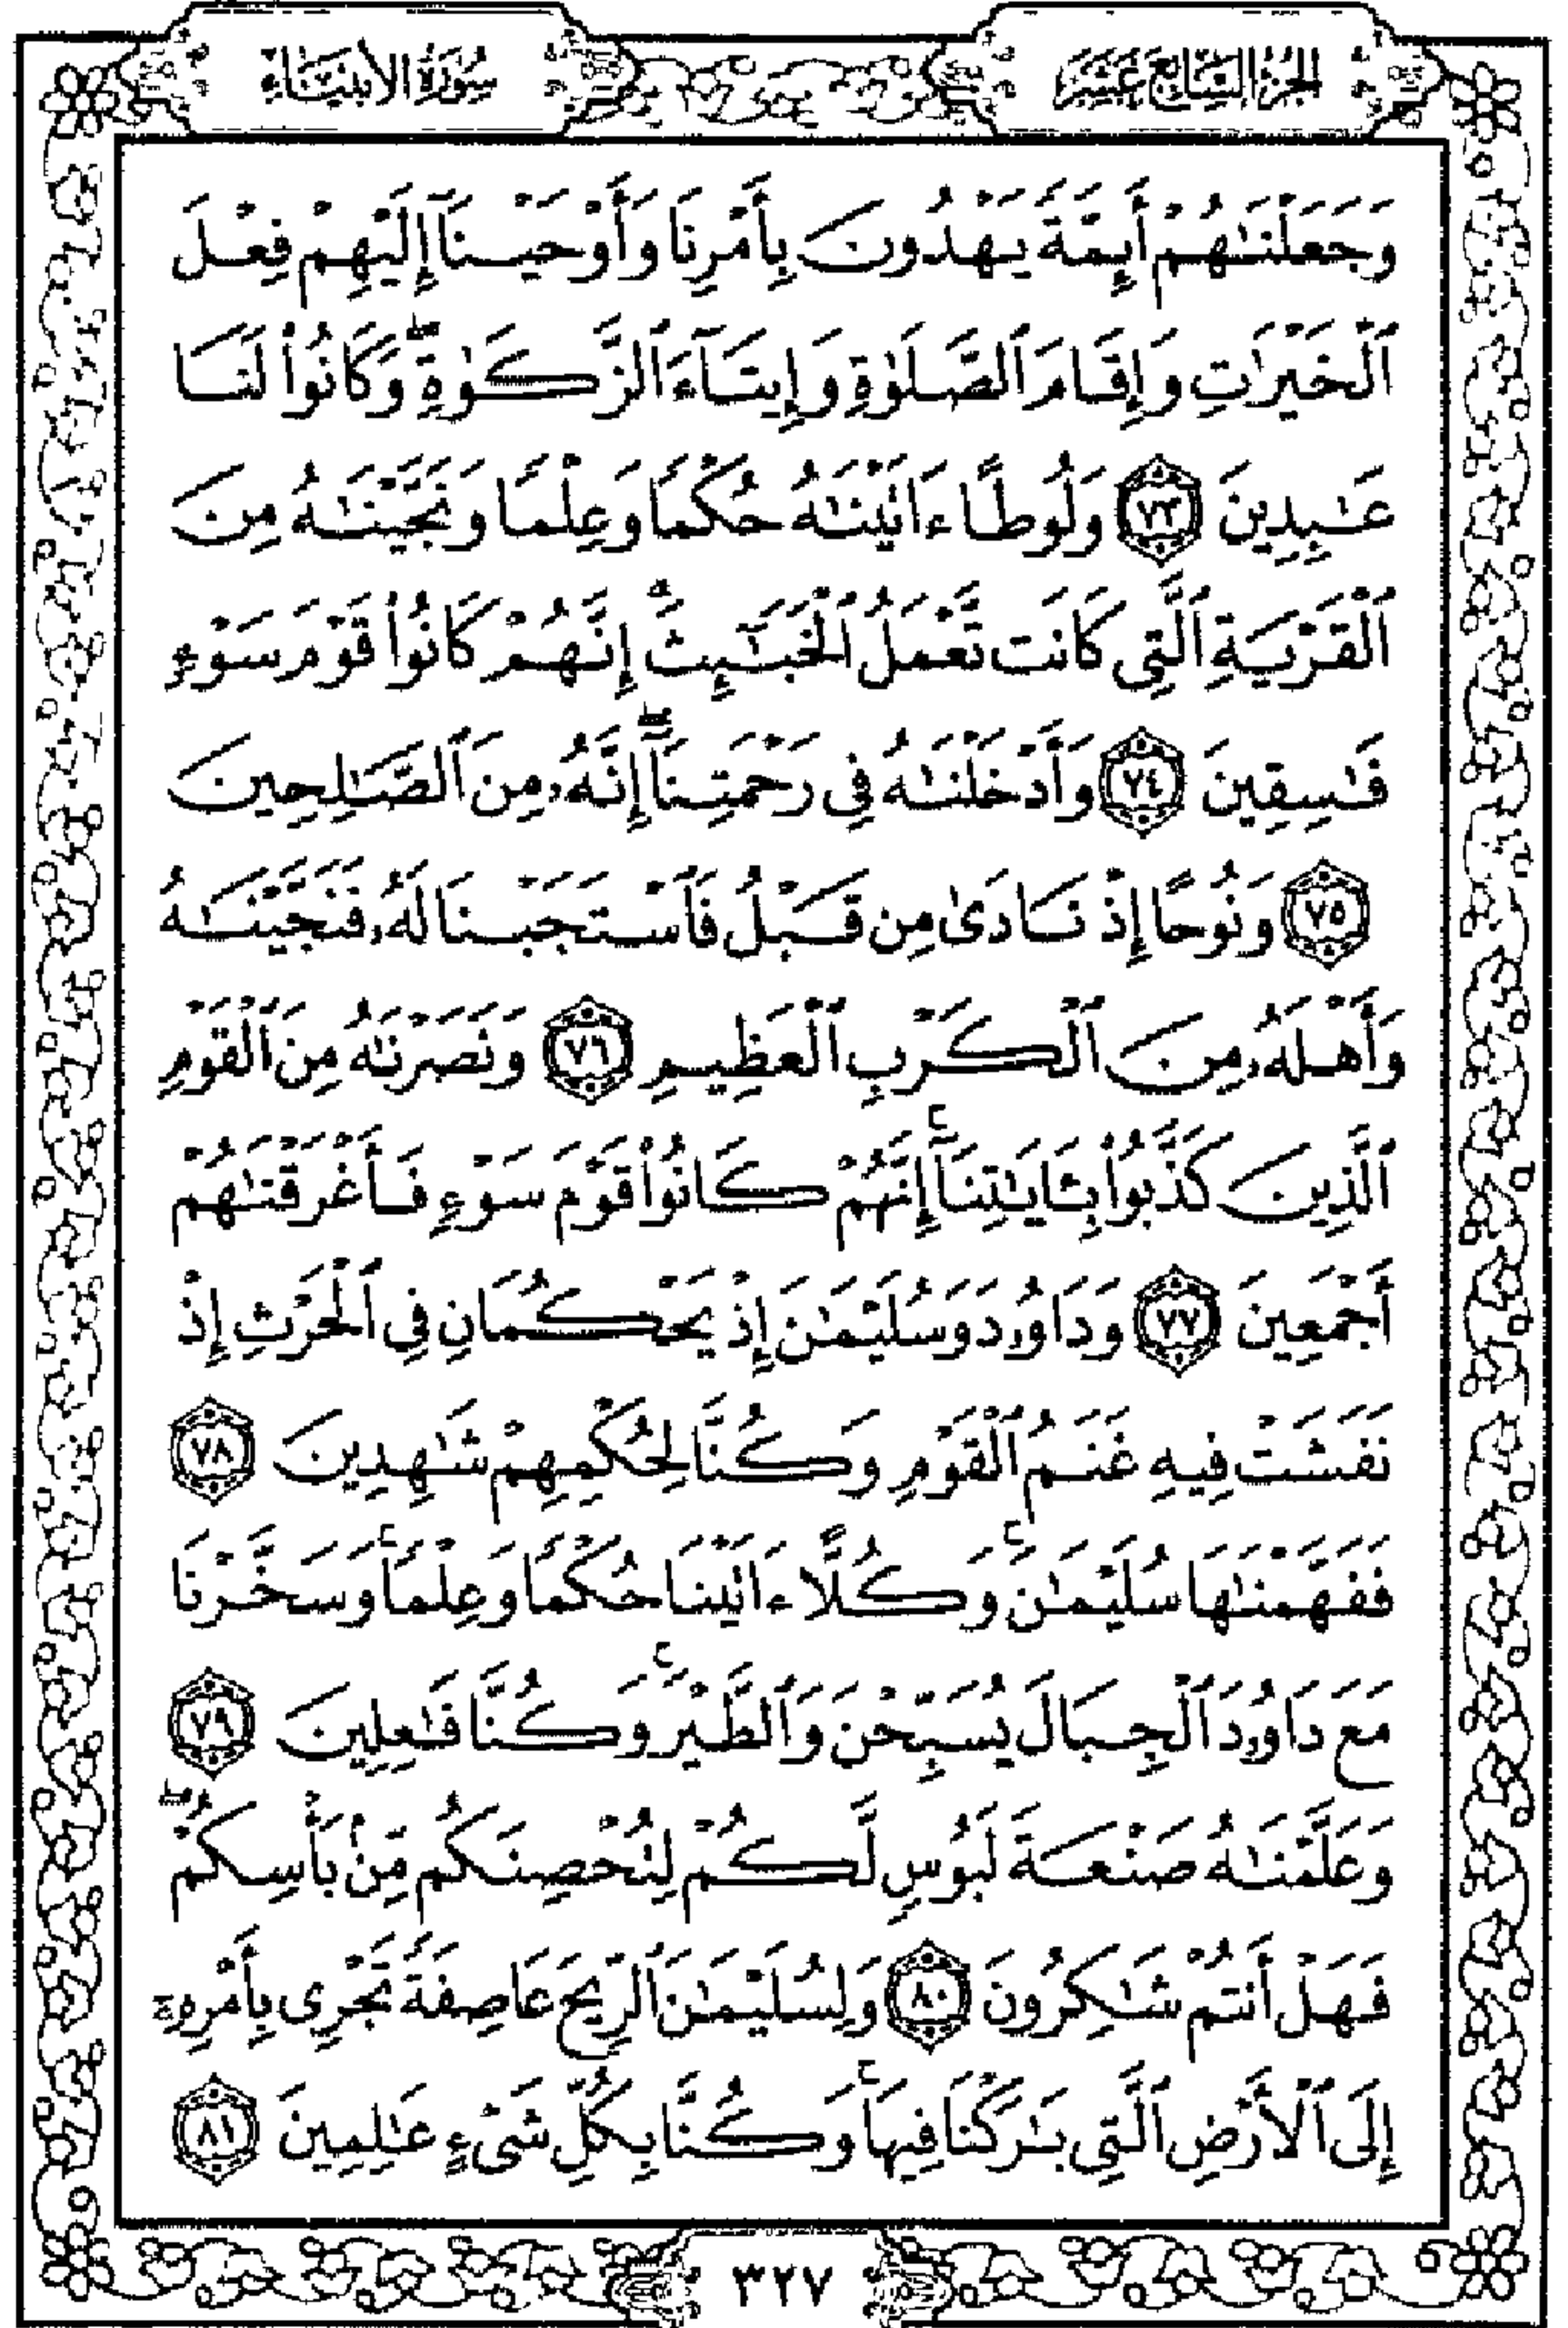 الجزء السابع عشر
سورة الأنبياء
وَجَعَلْنَٰهُمْ أَئِمَّةً يَهْدُونَ بِأَمْرِنَا وَأَوْحَيْنَآ إِلَيْهِمْ فِعْلَ
ٱلْخَيْرَٰتِ وَإِقَامَ ٱلصَّلَوٰةِ وَإِيتَآءَ ٱلزَّكَوٰةِ ۖ وَكَانُوا۟ لَنَا
عَٰبِدِينَ ٧٣ وَلُوطًا ءَاتَيْنَٰهُ حُكْمًا وَعِلْمًا وَنَجَّيْنَٰهُ مِنَ
ٱلْقَرْيَةِ ٱلَّتِى كَانَت تَّعْمَلُ ٱلْخَبَٰٓئِثَ ۗ إِنَّهُمْ كَانُوا۟ قَوْمَ سَوْءٍ
فَٰسِقِينَ ٧٤ وَأَدْخَلْنَٰهُ فِى رَحْمَتِنَآ ۖ إِنَّهُۥ مِنَ ٱلصَّٰلِحِينَ
٧٥ وَنُوحًا إِذْ نَادَىٰ مِن قَبْلُ فَٱسْتَجَبْنَا لَهُۥ فَنَجَّيْنَٰهُ
وَأَهْلَهُۥ مِنَ ٱلْكَرْبِ ٱلْعَظِيمِ ٧٦ وَنَصَرْنَٰهُ مِنَ ٱلْقَوْمِ
ٱلَّذِينَ كَذَّبُوا۟ بِـَٔايَٰتِنَآ ۚ إِنَّهُمْ كَانُوا۟ قَوْمَ سَوْءٍ فَأَغْرَقْنَٰهُمْ
أَجْمَعِينَ ٧٧ وَدَاوُۥدَ وَسُلَيْمَٰنَ إِذْ يَحْكُمَانِ فِى ٱلْحَرْثِ إِذْ
نَفَشَتْ فِيهِ غَنَمُ ٱلْقَوْمِ وَكُنَّا لِحُكْمِهِمْ شَٰهِدِينَ ٧٨
فَفَهَّمْنَٰهَا سُلَيْمَٰنَ ۚ وَكُلًّا ءَاتَيْنَا حُكْمًا وَعِلْمًا ۚ وَسَخَّرْنَا
مَعَ دَاوُۥدَ ٱلْجِبَالَ يُسَبِّحْنَ وَٱلطَّيْرَ ۚ وَكُنَّا فَٰعِلِينَ ٧٩
وَعَلَّمْنَٰهُ صَنْعَةَ لَبُوسٍ لَّكُمْ لِتُحْصِنَكُم مِّنۢ بَأْسِكُمْ ۖ
فَهَلْ أَنتُمْ شَٰكِرُونَ ٨٠ وَلِسُلَيْمَٰنَ ٱلرِّيحَ عَاصِفَةً تَجْرِى بِأَمْرِهِۦٓ
إِلَى ٱلْأَرْضِ ٱلَّتِى بَٰرَكْنَا فِيهَا ۚ وَكُنَّا بِكُلِّ شَىْءٍ عَٰلِمِينَ ٨١
٣٢٧